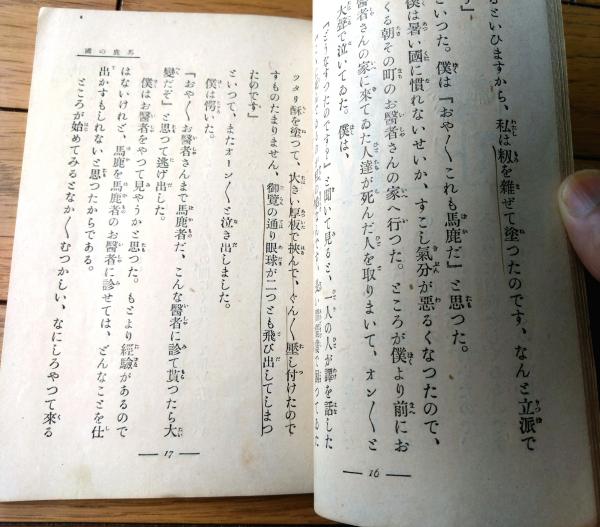 るといひますから、私は籾を雜ぜて塗つたのです、なんと立派で
す』
といつた。僕は『おや〳〵これも馬鹿だ』と思つた。
僕は暑い國に慣れないせいか、すこし氣分が惡るくなつたので、
くる朝その町のお醫者さんの家へ行つた。ところが僕より前にお
醫者さんの家に來てゐた人達が死んだ人を取りまいて、オン〳〵と
大聲で泣いてゐた。僕は、
『どうなすつたのです?』と聞いて見ると、一人の人が譯を話した
— 16 —
馬鹿の國
ツタリ酥を塗つて、大きい厚板で挾んで、ぐん〳〵壓し付けたので
すものたまりません、御覽の通り眼球が二つとも飛び出してしまつ
たのです』
といつて、またオーン〳〵と泣き出しました。
僕は愕いた。
『おや〳〵お醫者さんまで馬鹿者だ、こんな醫者に診て貰つたら大
變だぞ』と思つて逃げ出した。
僕はお醫者をやつて見やうかと思つた。もとより經驗があるので
はないけれど、馬鹿を馬鹿者のお醫者に診せては、どんなことを仕
出かすもしれないと思つたからである。
ところが始めてみるとなか〳〵むつかしい、なにしろやつて來る
— 17 —